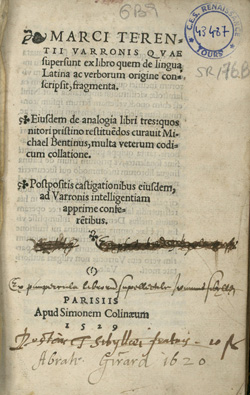 6B9
C.E.S. RENAISSANCE
43487
TOURS
SR/76B
MARCI TEREN-
TII VARRONIS QVAE
supersunt ex libro quem de lingua
Latina ac verborum origine con-
scripsit, fragmenta.
Eiusdem de analogia libri tres: quos
nitori pristino restituēdos curauit Mi-
chael Bentinus, multa veterum codi-
cum collatione.
Postpositis castigationibus eiusdem,
ad Varronis intelligentiam
apprime confe-
rētibus.
Ex
PARISIIS
Apud Simonem Colinæum
1529
fratris
Abrah. Girard 1620